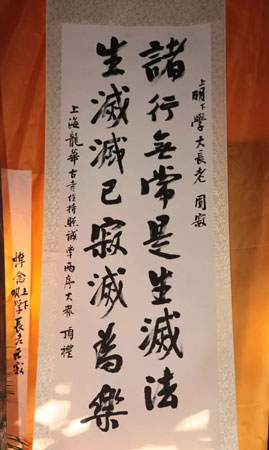 上明下學大長老 圓寂
諸行無常是生滅法
生滅滅已寂滅為樂
上海龍華古寺住持照誠率兩序大衆 頂禮
悼念上明下學長老示寂